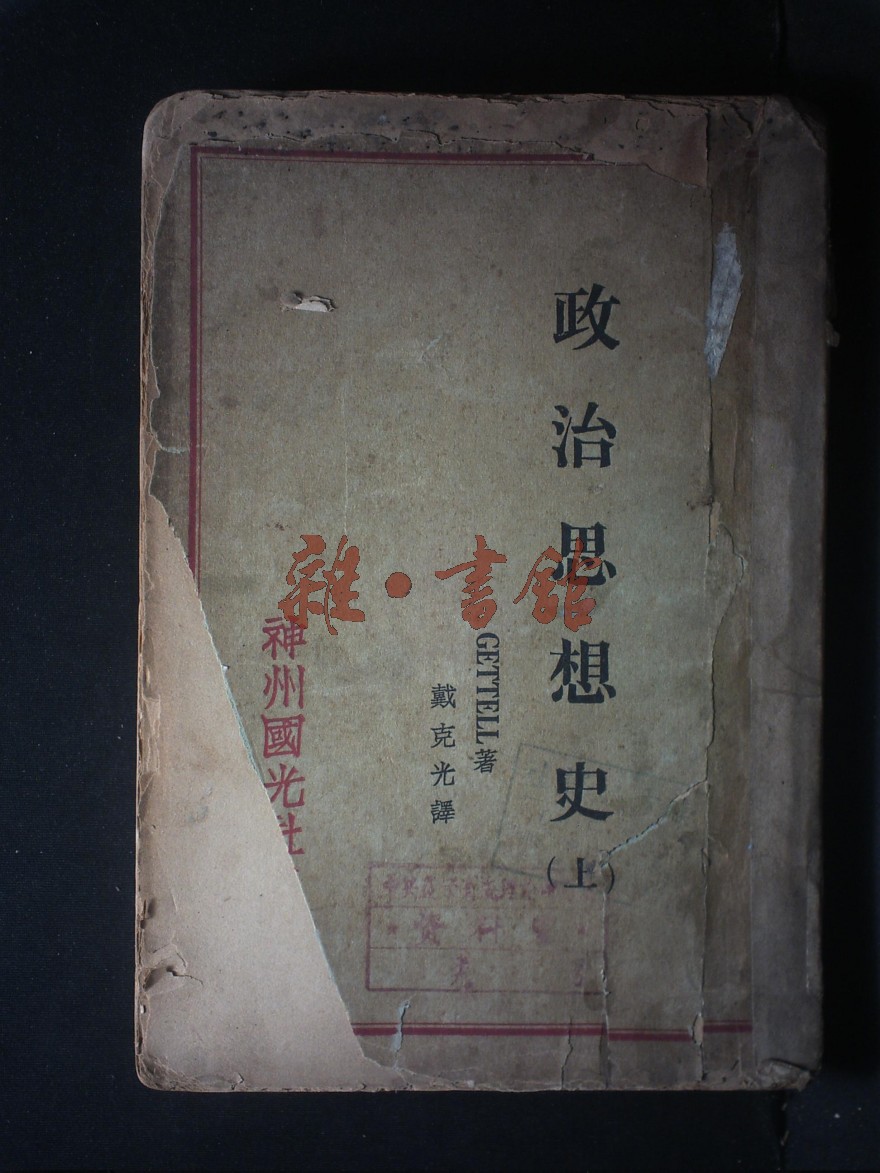 政治思想史(上)
GETTELL著
戴克光譯
神州國光社
雜·書館
資料室